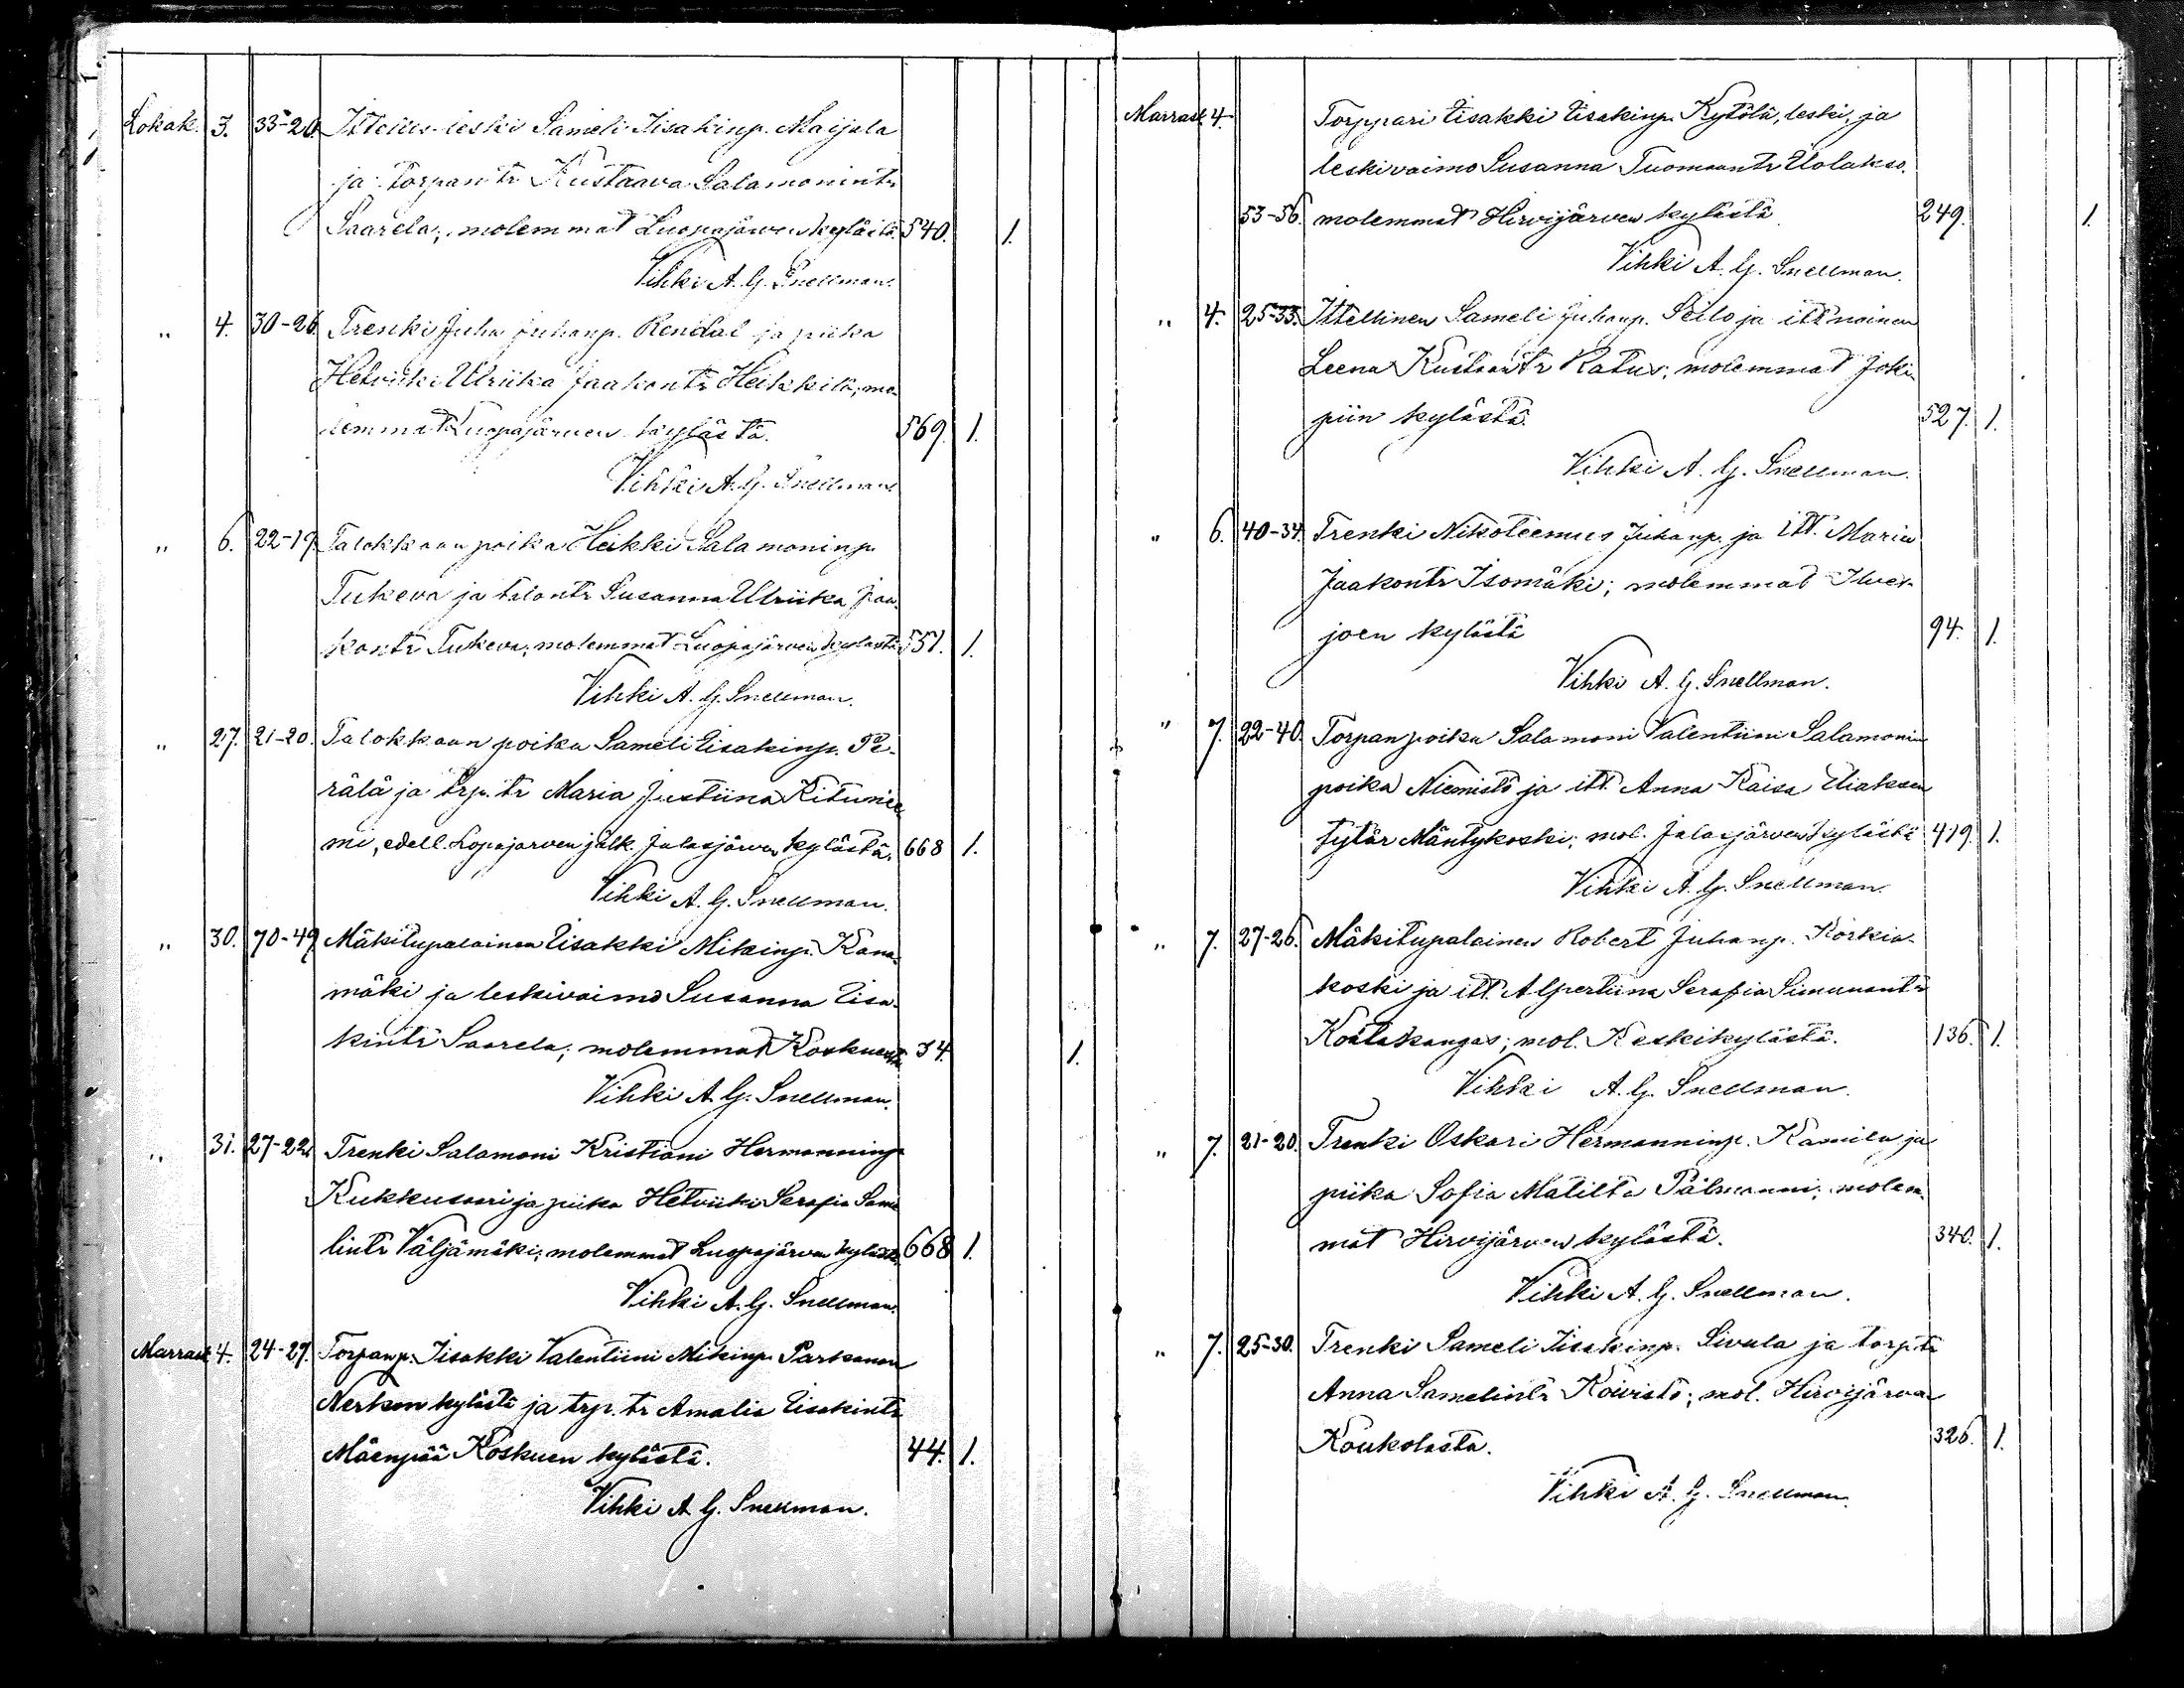 Lokak. 3. 33-20 Ittellis-leski Sameli Iisakinp. Maijala
ja torpan tr Kustaava Salamonintr
Saarela; molemmat Luopajärven kylästä. 540. 1.
Vihki A. G. Snellman.
" 4. 30-26 Trenki Juha Juhanp. Rendal ja piika
Hetviiki Ulriika Jaakontr Heikkilä; mo-
lemmat Luopajärven kylästä. 569. 1.
Vihki A. G. Snellman
" 6. 22-19. Talokkaan poika Heikki Salamoninp.
Tukeva ja talontr Susanna Ulriika Jaa-
kontr Tukeva; molemmat Luopajärven kylästä 551. 1.
Vihki A. G. Snellman.
" 27. 21-20. Talokkaan poika Sameli Eisakinp. Pe-
rälä ja trp. tr Maria Justiina Kitunie
mi, edell. Lopajarven jälk. Jalasjärven kylästä. 668 1.
Vihki A. G. Snellman.
" 30. 70-49 Mäkitupalainen Eisakki Mikinp. Kana-
mäki ja leskivaimo Susanna Eisa-
kintr Saarela; molemmat Koskuesta 34. 1.
Vihki A. G. Snellman.
" 31. 27-22 Trenki Salamoni Kristiani Hermanninp
Kukkusaari ja piika Hetviiki Serafia Same
lintr Väljämäki; molemmat Luopajärven kylästä. 668 1.
Vihki A. G. Snellman.
Marrask 4. 24-27. Torpanp. Iisakki Valentiini Mikinp. Parkanon
Nerkon kylästä ja trp. tr Amalia Eisakintr
Mäenpää Koskuen kylästä. 44. 1.
Vihki A G. Snellman.
Marrask 4. Torppari Eisakki Eisakinp. Kytölä, leski, ja
leskivaimo Susanna Tuomaantr Uolakso.
53-56. molemmat Hirvijärven kylästä 249. 1.
Vihki A. G. Snellman.
" 4. 25-33. Ittellinen Sameli Juhanp. Seilo ja itt nainen
Leena Kustaantr Ratus; molemmat Joki-
piin kylästä. 527. 1.
Vihki A. G. Snellman.
" 6. 40-34. Trenki Nikoteemus Juhanp. ja itt. Maria
Jaakontr Isomäki; molemmat Ilves-
joen kylästä 94. 1.
Vihki A. G. Snellman.
" 7. 22-40. Torpan poika Salamoni Valentiini Salamonin
poika Niemistö ja itt. Anna Kaisa Eliaksen
tytär Mäntykoski; mol. Jalasjärven kylästä 419. 1.
Vihki A. G. Snellman.
" 7. 27-26. Mäkitupalainen Robert Juhanp. Korkia-
koski ja itt. Alpertiina Serafia Simunantr
Koatakangas; mol. Keskikylästä. 136. 1.
Vihki A. G. Snellman.
" 7. 21-20. Trenki Oskari Hermanninp. Kamila ja
piika Sofia Matilta Pälmanni; molem-
mat Hirvijärven kylästä. 340. 1.
Vihki A. G. Snellman.
" 7. 25-30. Trenki Sameli Iisakinp. Sivula ja torp tr
Anna Samelintr Koivisto; mol. Hirvijärven
Koukolasta. 326. 1.
Vihki A. G. Snellman.